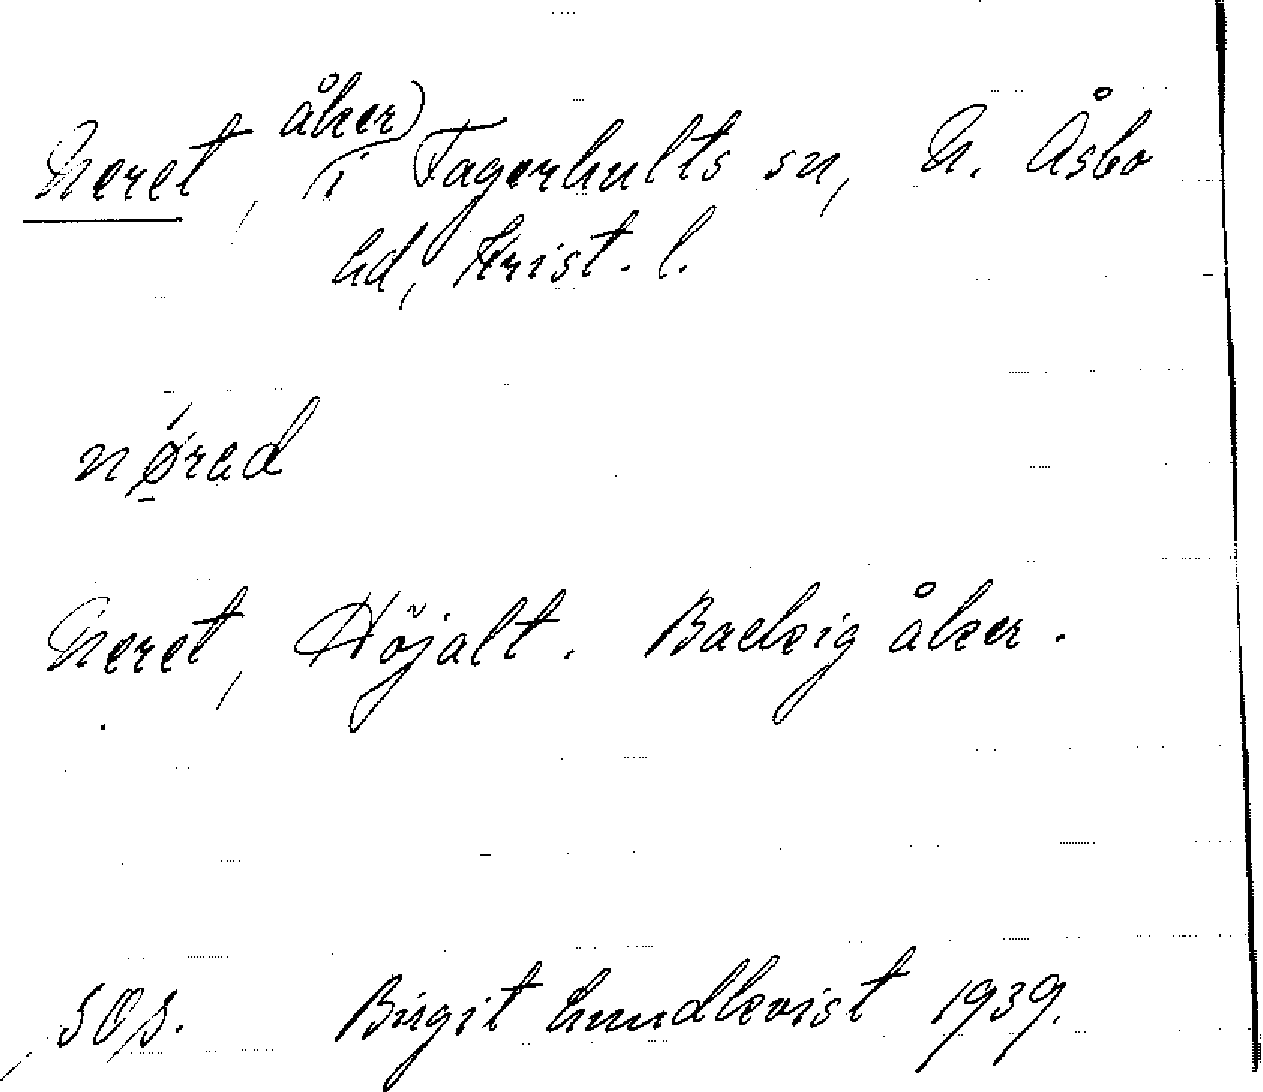 Neret, åker) i Fagerhults sn, N. Åsbo
hd, Krist. l.
nørəd
Neret, Höjalt. Backig åker.
sOs. Birgit Lundkvist 1939.